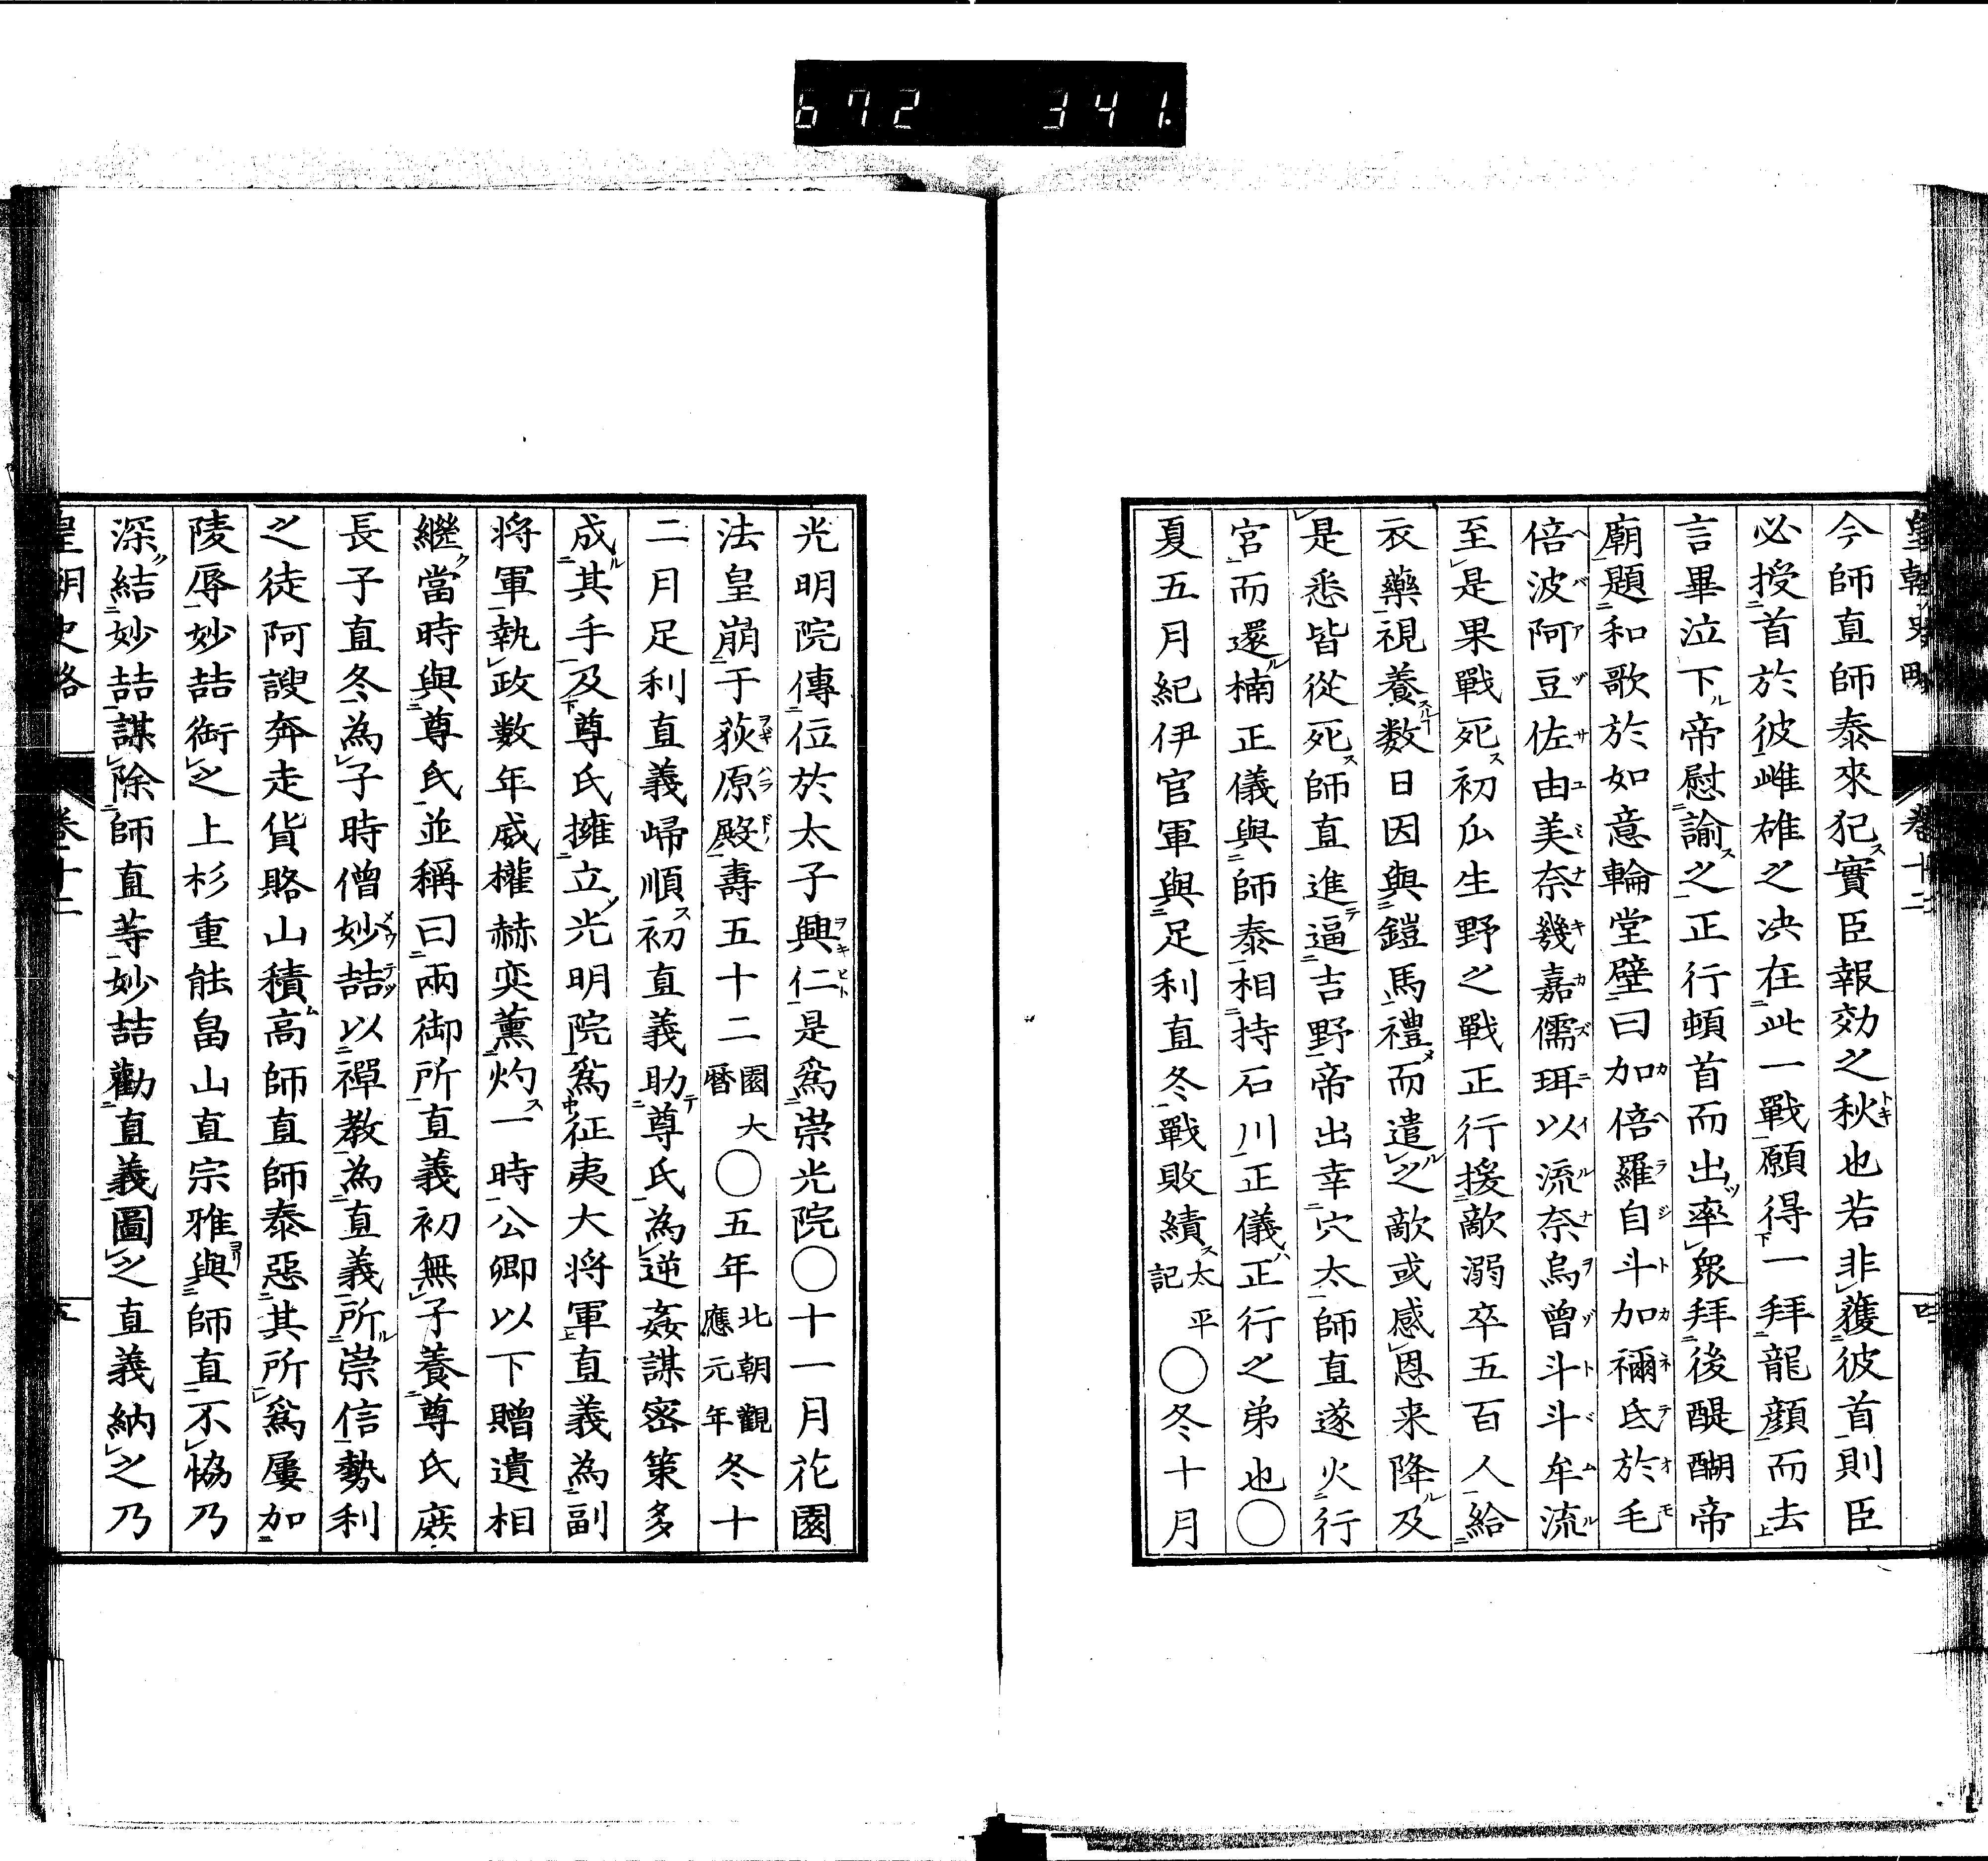 672 341.
皇朝史略 卷十二 四
今師直師泰來犯實臣報効之秋也若非獲彼首則臣
必授首於彼雌雄之決在此一戰願得一拜龍顔而去
言畢泣下帝慰諭之正行頓首而出率衆拜後醍醐帝
廟題和歌於如意輪堂壁曰加倍羅自斗加禰氐於毛
倍波阿豆佐由美奈幾嘉儒珥以流奈烏曾斗斗牟流
至是果戰死初瓜生野之戰正行援敵溺卒五百人給
衣藥視養数日因與鎧馬禮而遣之敵或感恩来降及
是悉皆從死師直進逼吉野帝出幸穴太師直遂火行
宮而還楠正儀與師泰相持石川正儀正行之弟也〇
夏五月紀伊官軍與足利直冬戰敗績太平記〇冬十月
光明院傳位於太子興仁是爲崇光院〇十一月花園
法皇崩于荻原殿壽五十二園大暦〇五年北朝觀應元年冬十
二月足利直義歸順初直義助尊氏為逆姦謀密策多
成其手及尊氏擁立光明院爲征夷大将軍直義為副
将軍執政数年威權赫奕薰灼一時公卿以下贈遺相
繼當時與尊氏並稱曰兩御所直義初無子養尊氏庶
長子直冬為子時僧妙喆以禪教為直義所崇信勢利
之徒阿諛奔走貨賂山積高師直師泰惡其所爲屢加
陵辱妙喆銜之上杉重能畠山直宗雅與師直不恊乃
深結妙喆謀除師直等妙喆勸直義圖之直義納之乃
皇朝史略 卷十二 五